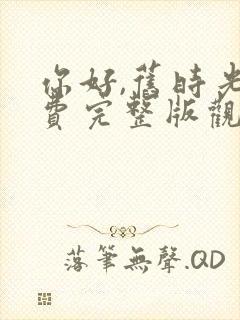 你好,舊時光
費完整版觀
落筆無聲.QD